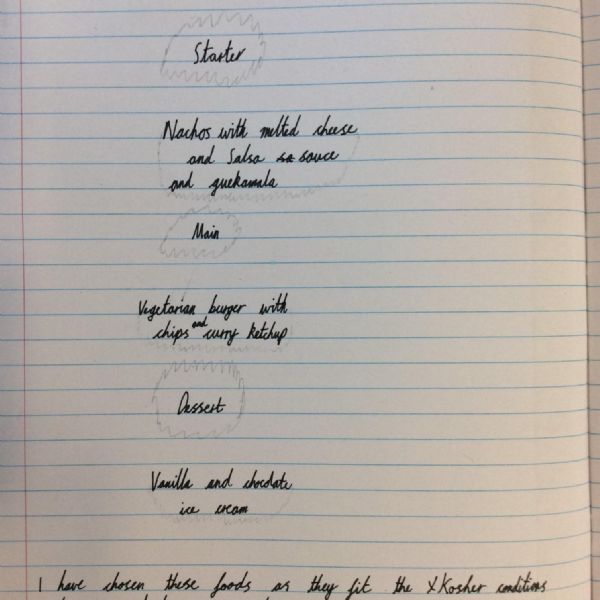 Starter
Nachos with melted cheese
and Salsa so sauce
and guekamala
Main
Vegetarian burger with
chips and curry ketchup
Dessert
Vanilla and chocolate
ice cream
I have chosen these foods as they fit the Kosher conditions